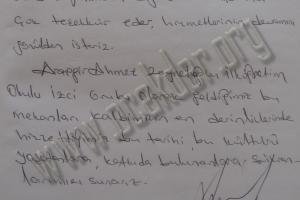 Çok teşekkür eder, hizmetlerinin devamını
gönülden isteriz.
Arapgir Ahmet İlköğretim
Okulu İzci Grubu olarak geldiğimiz bu
mekanları, kalbimizin en derinliklerinde
hissettiğimiz bu tarihi, bu kültürü
yaşatanlara, katkıda bulunanlara şükran-
larımızı sunarız.
www.pratdgr.org